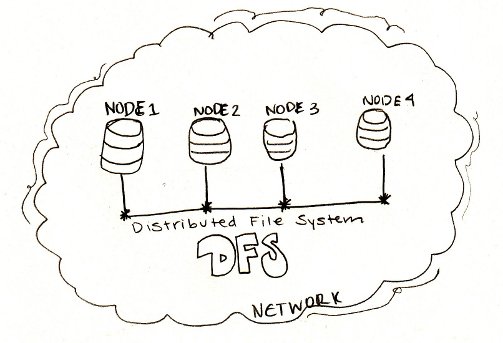 NODE 1 NODE 2 NODE 3 NODE 4
Distributed File System
DFS
NETWORK